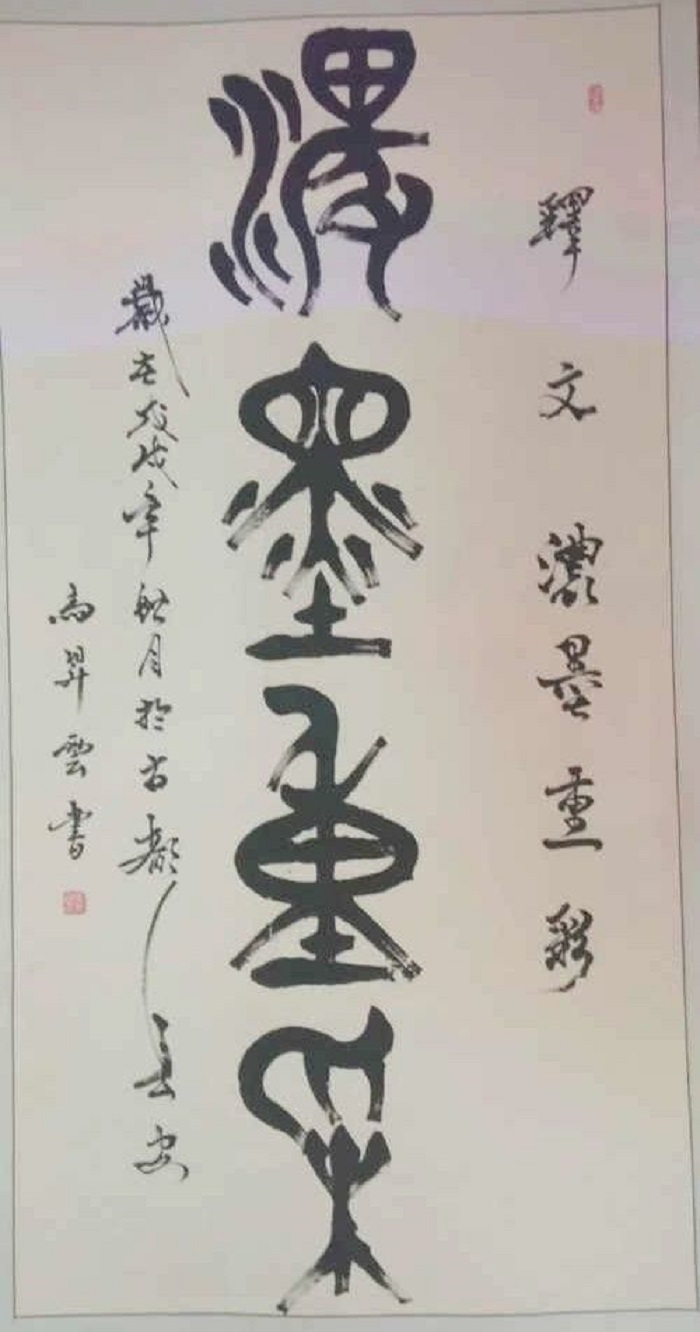 釋文濃墨重彩
濃墨重采
歲在戊戌年月於古都長安
昇雲書